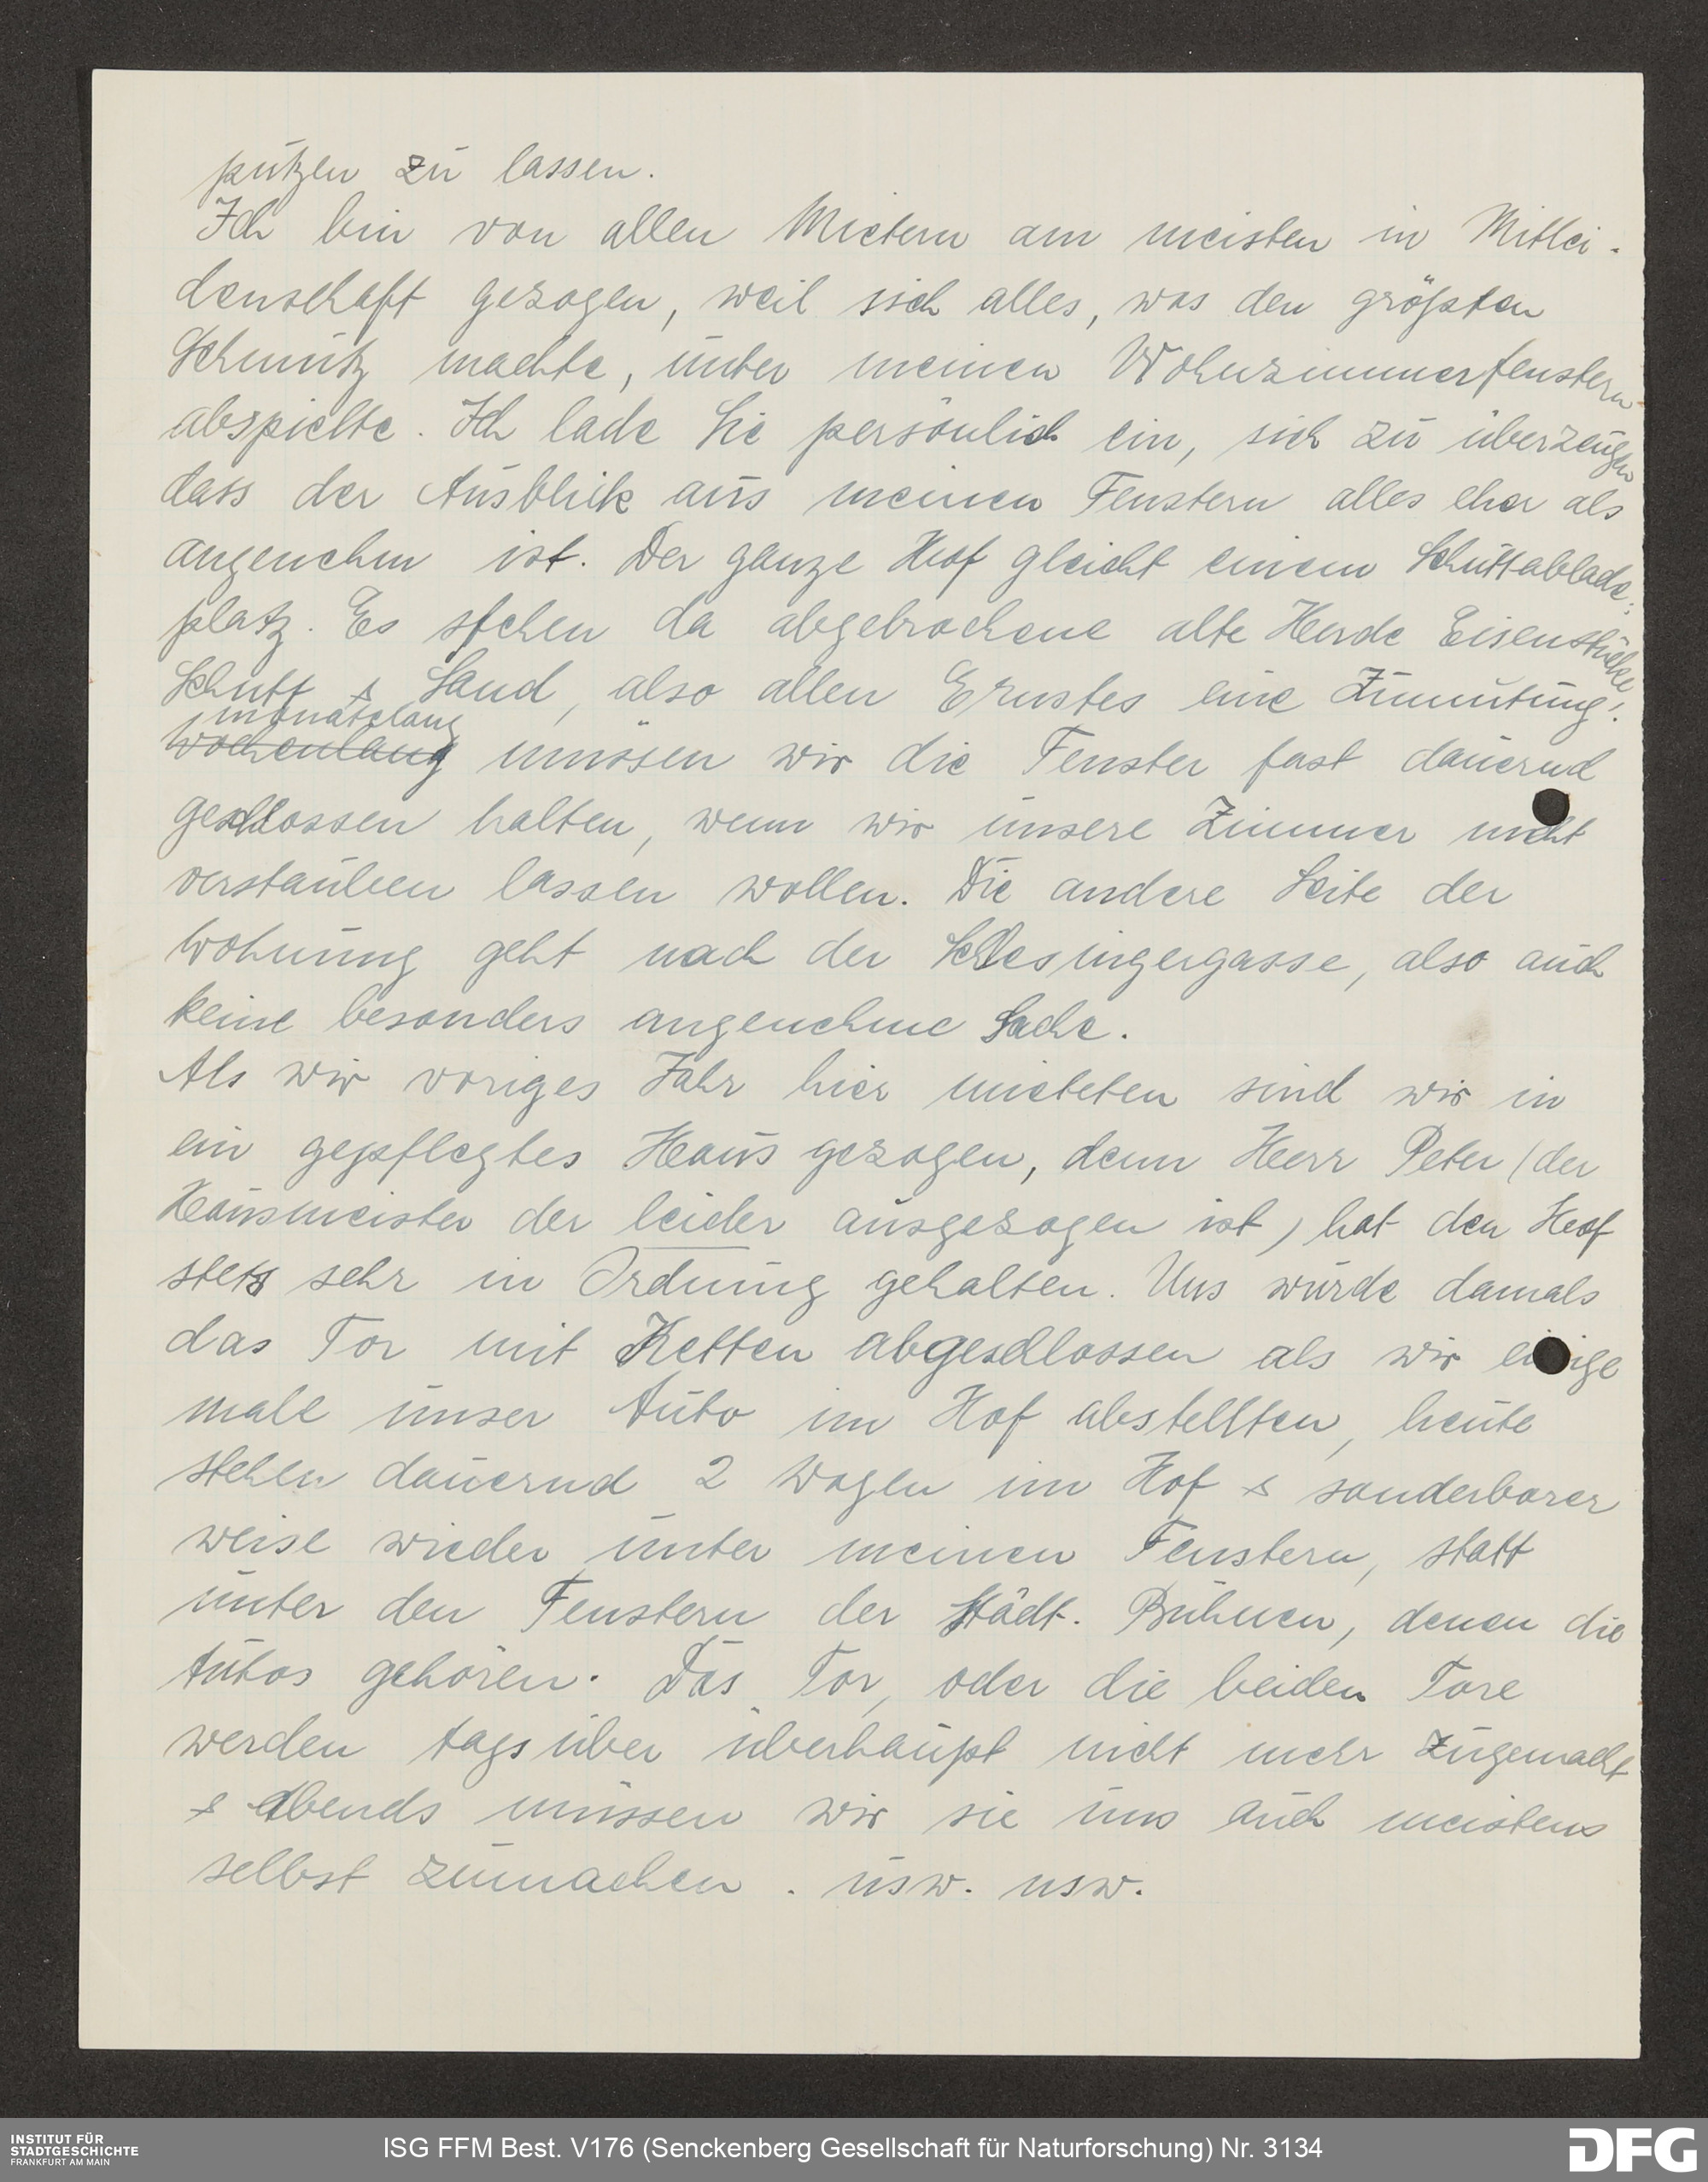 putzen zu lassen.
Ich bin von allen Mietern am meisten in Mitlei-
denschaft gezogen, weil sich alles, was den größten
Schmutz machte, unter meinen Wohnzimmerfenstern
abspielte. Ich lade Sie persönlich ein, sich zu überzeugen
dass der Ausblick aus meinen Fenstern alles eher als
angenehm ist. Der ganze Hof gleicht einem Schuttablade-
platz. Es stehen da abgebrochene alte Herde Eisenstücke
Schutt & Sand, also allen Ernstes eine Zumutung!
monatelang
wochenlang müssen wir die Fenster fast dauernd
geschlossen halten, wenn wir unsere Zimmer nicht
verstauben lassen wollen. Die andere Seite der
Wohnung geht nach der Schlesingergasse, also auch
keine besonders angenehme Sache.
Als wir voriges Jahr hier mieteten sind wir in
ein gepflegtes Haus gezogen, denn Herr Peter (der
Hausmeister der leider ausgezogen ist) hat den Hof
stets sehr in Ordnung gehalten. Uns wurde damals
das Tor mit Ketten abgeschlossen als wir einige
male unser Auto im Hof abstellten, heute
stehen dauernd 2 Wagen im Hof & sonderbarer
weise wieder unter meinen Fenstern, statt
unter den Fenstern der Städt. Bühnen, denen die
Autos gehören. Das Tor, oder die beiden Tore
werden tagsüber überhaupt nicht mehr zugemacht
& abends müssen wir sie uns auch meistens
selbst zumachen. usw. usw.
INSTITUT FÜR
STADTGESCHICHTE
FRANKFURT AM MAIN
ISG FFM Best. V176 (Senckenberg Gesellschaft für Naturforschung) Nr. 3134
DFG